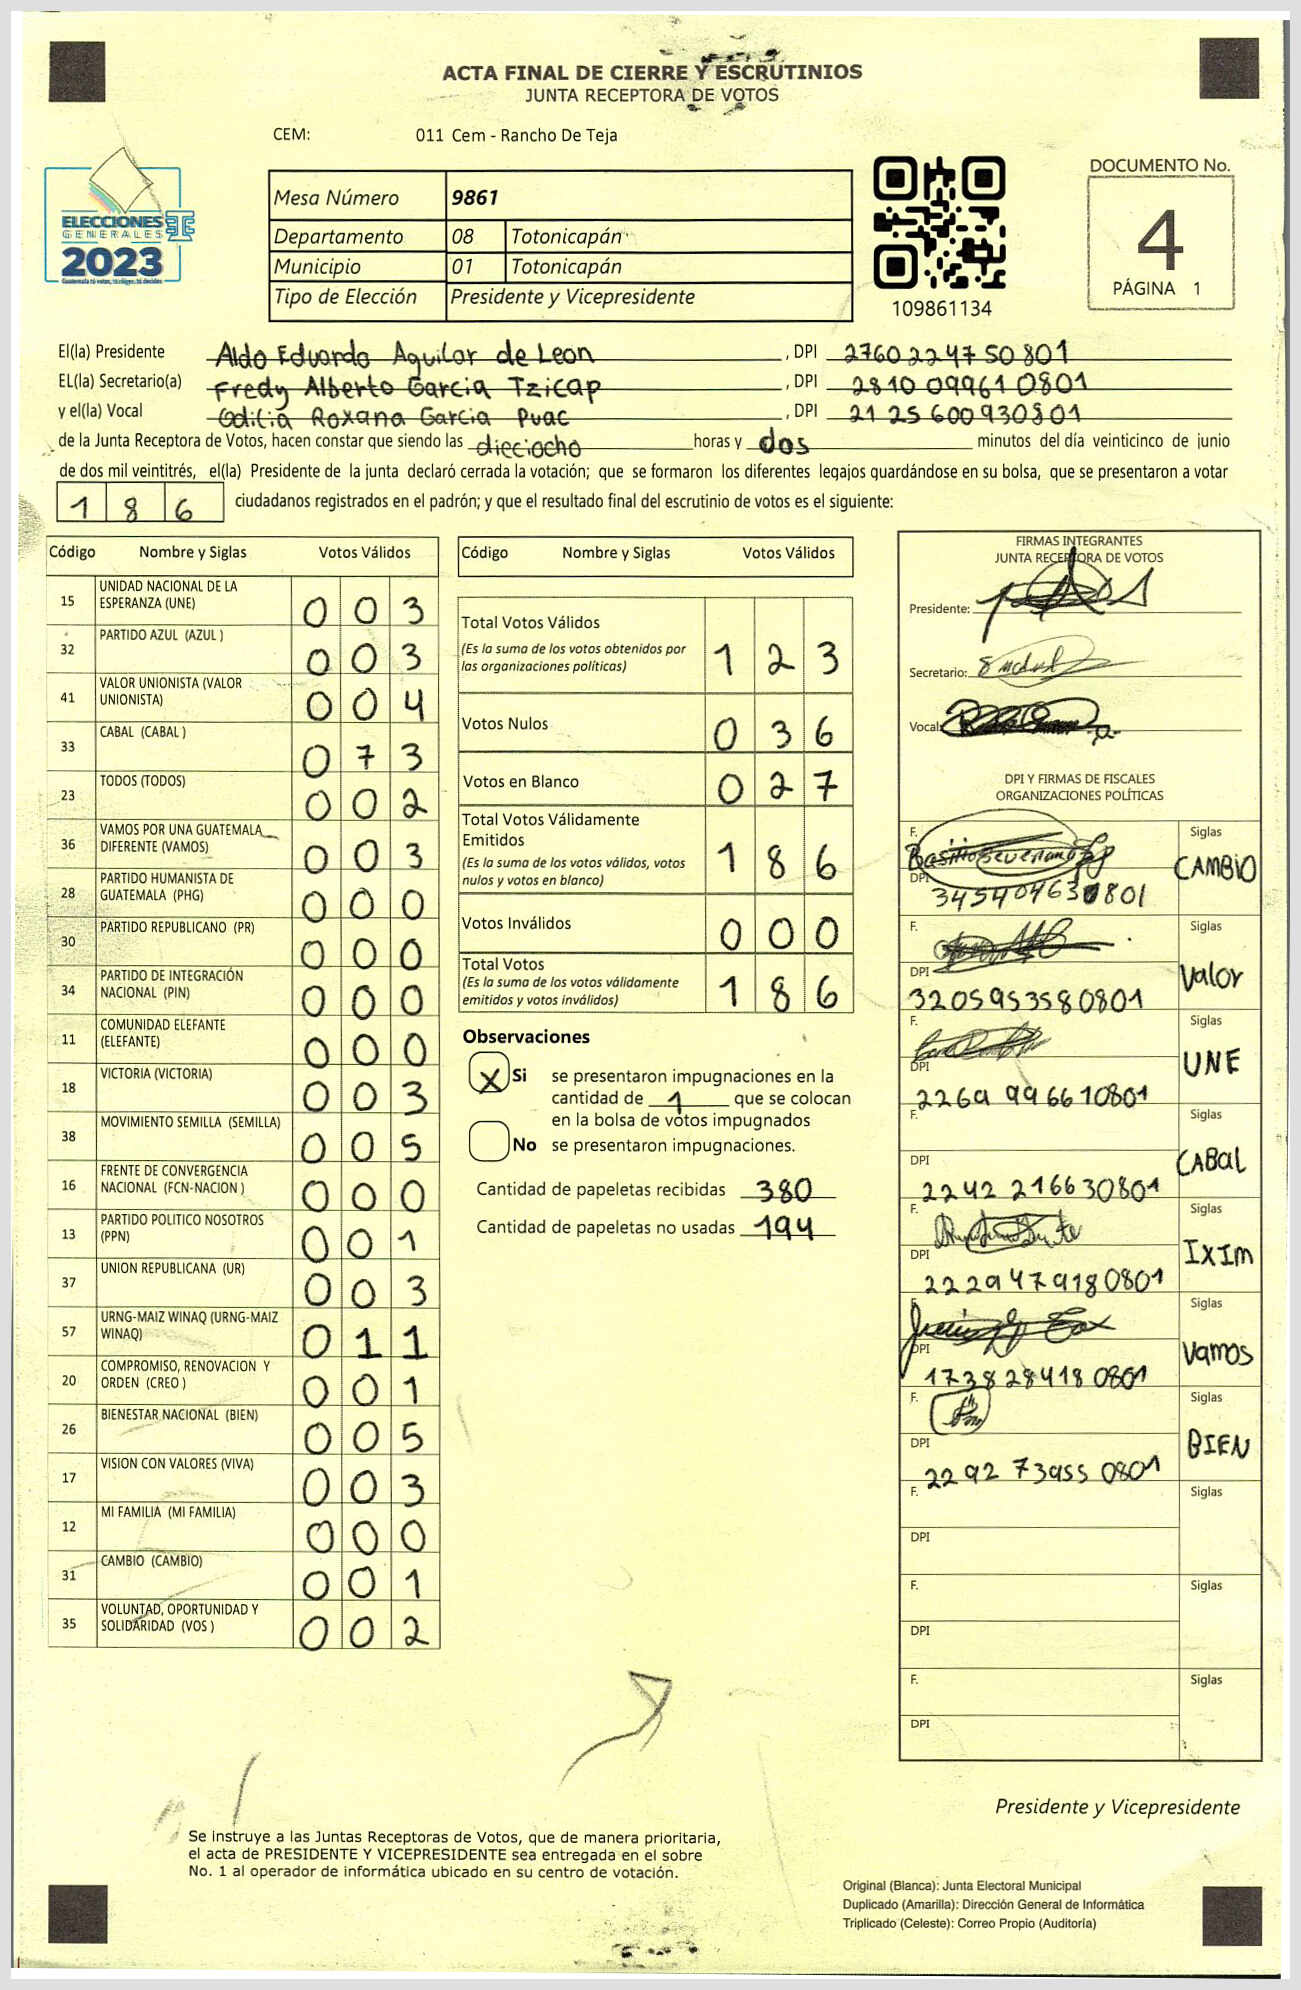 ACTA FINAL DE CIERRE Y ESCRUTINIOS
JUNTA RECEPTORA DE VOTOS
CEM: 011 Cem - Rancho De Teja
ELECCIONES
GENERALES
2023
Mesa Número 9861
Departamento 08 Totonicapán
Municipio 01 Totonicapán
Tipo de Elección Presidente y Vicepresidente
109861134
DOCUMENTO No.
4
PÁGINA 1
El(la) Presidente Aldo Eduardo Aguilar de Leon, DPI 2760224750801
EL(la) Secretario(a) Fredy Alberto Garcia Tzicap, DPI 2810 09961 0801
y el(la) Vocal Odilia Roxana Garcia Puac, DPI 2125600930801
de la Junta Receptora de Votos, hacen constar que siendo las dieciocho horas y dos minutos del día veinticinco de junio
de dos mil veintitrés, el(la) Presidente de la junta declaró cerrada la votación; que se formaron los diferentes legajos quardándose en su bolsa, que se presentaron a votar
1 8 6 ciudadanos registrados en el padrón; y que el resultado final del escrutinio de votos es el siguiente:
Código Nombre y Siglas Votos Válidos
15 UNIDAD NACIONAL DE LA ESPERANZA (UNE) 0 0 3
32 PARTIDO AZUL (AZUL ) 0 0 3
41 VALOR UNIONISTA (VALOR UNIONISTA) 0 0 4
33 CABAL (CABAL ) 0 7 3
23 TODOS (TODOS) 0 0 2
36 VAMOS POR UNA GUATEMALA DIFERENTE (VAMOS) 0 0 3
28 PARTIDO HUMANISTA DE GUATEMALA (PHG) 0 0 0
30 PARTIDO REPUBLICANO (PR) 0 0 0
34 PARTIDO DE INTEGRACIÓN NACIONAL (PIN) 0 0 0
11 COMUNIDAD ELEFANTE (ELEFANTE) 0 0 0
18 VICTORIA (VICTORIA) 0 0 3
38 MOVIMIENTO SEMILLA (SEMILLA) 0 0 5
16 FRENTE DE CONVERGENCIA NACIONAL (FCN-NACION ) 0 0 0
13 PARTIDO POLITICO NOSOTROS (PPN) 0 0 1
37 UNION REPUBLICANA (UR) 0 0 3
57 URNG-MAIZ WINAQ (URNG-MAIZ WINAQ) 0 1 1
20 COMPROMISO, RENOVACION Y ORDEN (CREO ) 0 0 1
26 BIENESTAR NACIONAL (BIEN) 0 0 5
17 VISION CON VALORES (VIVA) 0 0 3
12 MI FAMILIA (MI FAMILIA) 0 0 0
31 CAMBIO (CAMBIO) 0 0 1
35 VOLUNTAD, OPORTUNIDAD Y SOLIDARIDAD (VOS ) 0 0 2
Código Nombre y Siglas Votos Válidos
Total Votos Válidos 1 2 3
(Es la suma de los votos obtenidos por
las organizaciones políticas)
Votos Nulos 0 3 6
Votos en Blanco 0 2 7
Total Votos Válidamente
Emitidos 1 8 6
(Es la suma de los votos válidos, votos
nulos y votos en blanco)
Votos Inválidos 0 0 0
Total Votos 1 8 6
(Es la suma de los votos válidamente
emitidos y votos inválidos)
Observaciones
X Si se presentaron impugnaciones en la
cantidad de 1 que se colocan
en la bolsa de votos impugnados
No se presentaron impugnaciones.
Cantidad de papeletas recibidas 380
Cantidad de papeletas no usadas 194
FIRMAS INTEGRANTES
JUNTA RECEPTORA DE VOTOS
Presidente:
Secretario:
Vocal:
DPI Y FIRMAS DE FISCALES
ORGANIZACIONES POLÍTICAS
F. Siglas
CAMBIO
DPI
F. Siglas
DPI Valor
3205953580801
F. Siglas
DPI UNE
2269 996610801
F. Siglas
DPI CABAL
2242 216630801
F. Siglas
DPI IXIM
2229479180801
F. Siglas
DPI Vamos
1738284180801
F. Siglas
DPI BIEN
2292 73955 0801
F. Siglas
DPI
F. Siglas
DPI
F. Siglas
DPI
Presidente y Vicepresidente
Se instruye a las Juntas Receptoras de Votos, que de manera prioritaria,
el acta de PRESIDENTE Y VICEPRESIDENTE sea entregada en el sobre
No. 1 al operador de informática ubicado en su centro de votación.
Original (Blanca): Junta Electoral Municipal
Duplicado (Amarilla): Dirección General de Informática
Triplicado (Celeste): Correo Propio (Auditoría)